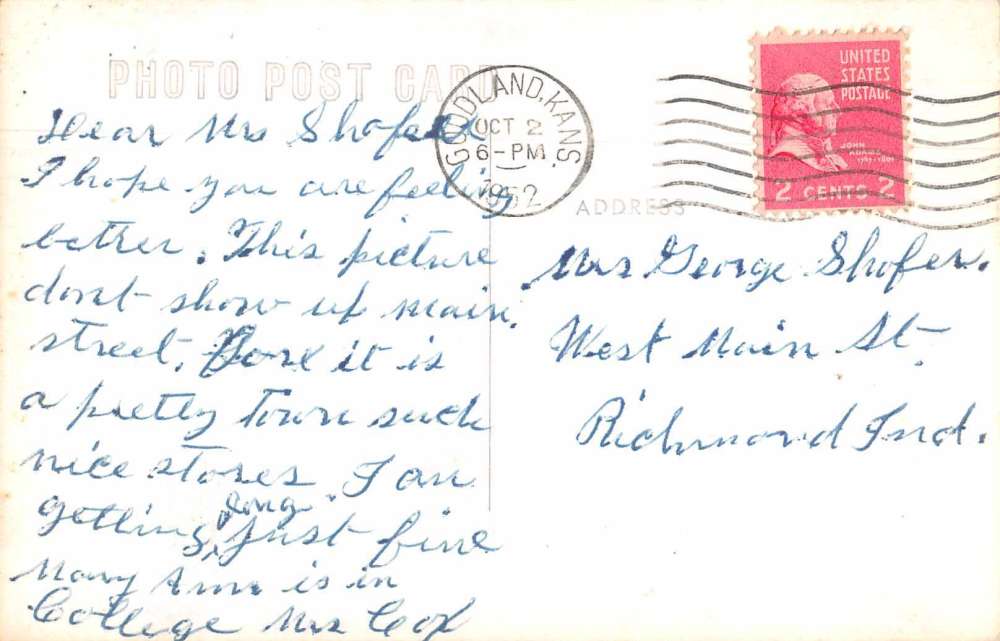 PHOTO POST CARD
GOODLAND, KANS.
OCT 2
6-PM
1952
UNITED
STATES
POSTAGE
JOHN
ADAMS
1797-1801
2 CENTS 2
ADDRESS
Dear Mrs Shofer
I hope you are feeling
better. This picture
dont show up main
street. it is
a pretty Town such
nice stores. I am
getting along just fine
Mary Ann is in
College Mrs Cox
Mrs George Shofer.
West Main St.
Richmond Ind.